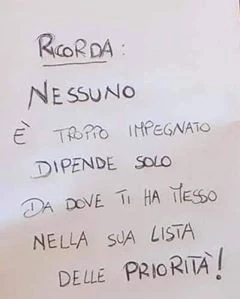 RICORDA:
NESSUNO
È TROPPO IMPEGNATO
DIPENDE SOLO
DA DOVE TI HA MESSO
NELLA SUA LISTA
DELLE PRIORITÀ!